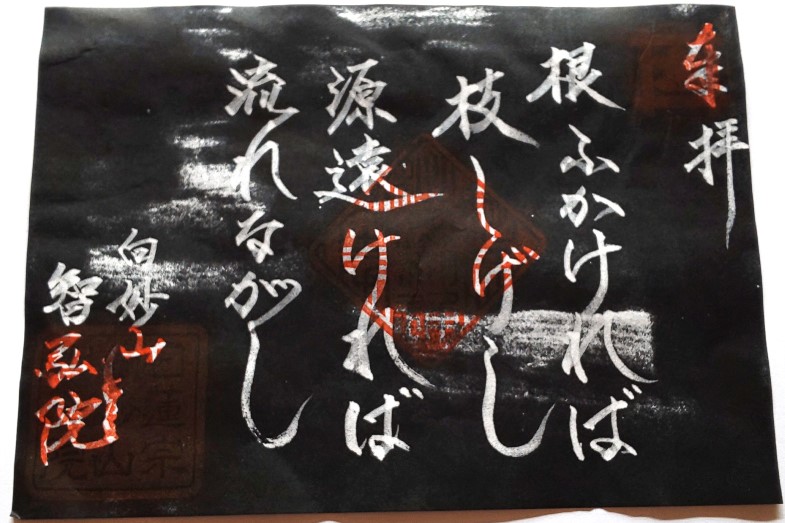 奉拝
根ふかければ
枝しげし
源遠ければ
流れながし
向妙山
智弘院